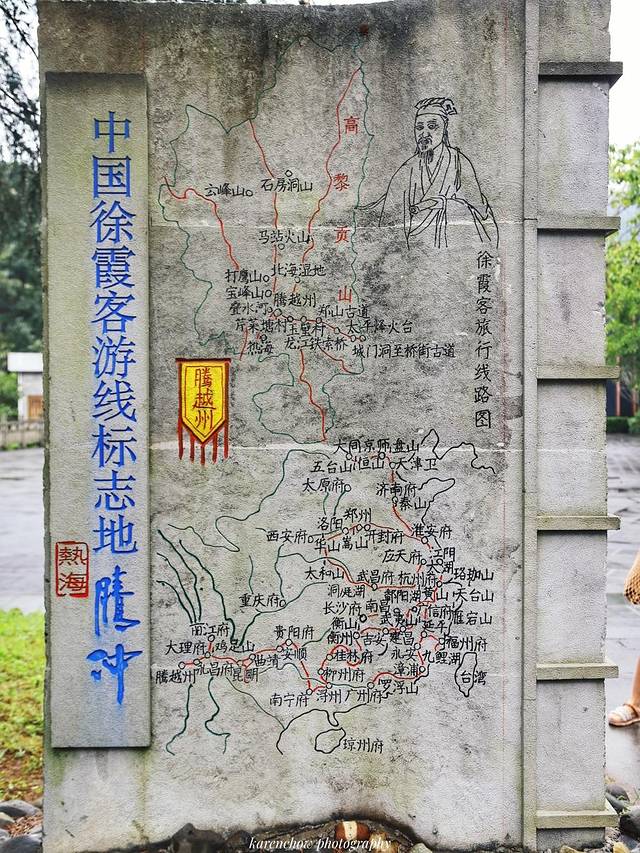 中国徐霞客游线标志地
腾冲
熱海
徐霞客旅行线路图
高黎贡山
云峰山
石房洞山
马站火山
北海湿地
打鹰山
宝峰山
腾越州
叠水河
郑山古道
太平烽火台
热海
龙江铁索桥
城门洞至桥街古道
腾越州
大同
京师
盘山
五台山
恒山
天津卫
太原府
济南府
泰山
洛阳
郑州
西安府
华山
嵩山
开封府
淮安府
应天府
江阴
太湖
太和山
武昌府
杭州府
珞珈山
洞庭湖
鄱阳湖
黄山
天台山
重庆府
长沙府
南昌
雁宕山
衡山
武夷山
延平
丽江府
贵阳府
衡州
吉安
建昌
福州府
大理府
鸡足山
安顺
桂林府
永安
九鲤湖
腾越州
永昌府
昆明
曲靖
柳州府
漳浦
台湾
南宁府
浔州
广州府
罗浮山
琼州府
karenchow photography